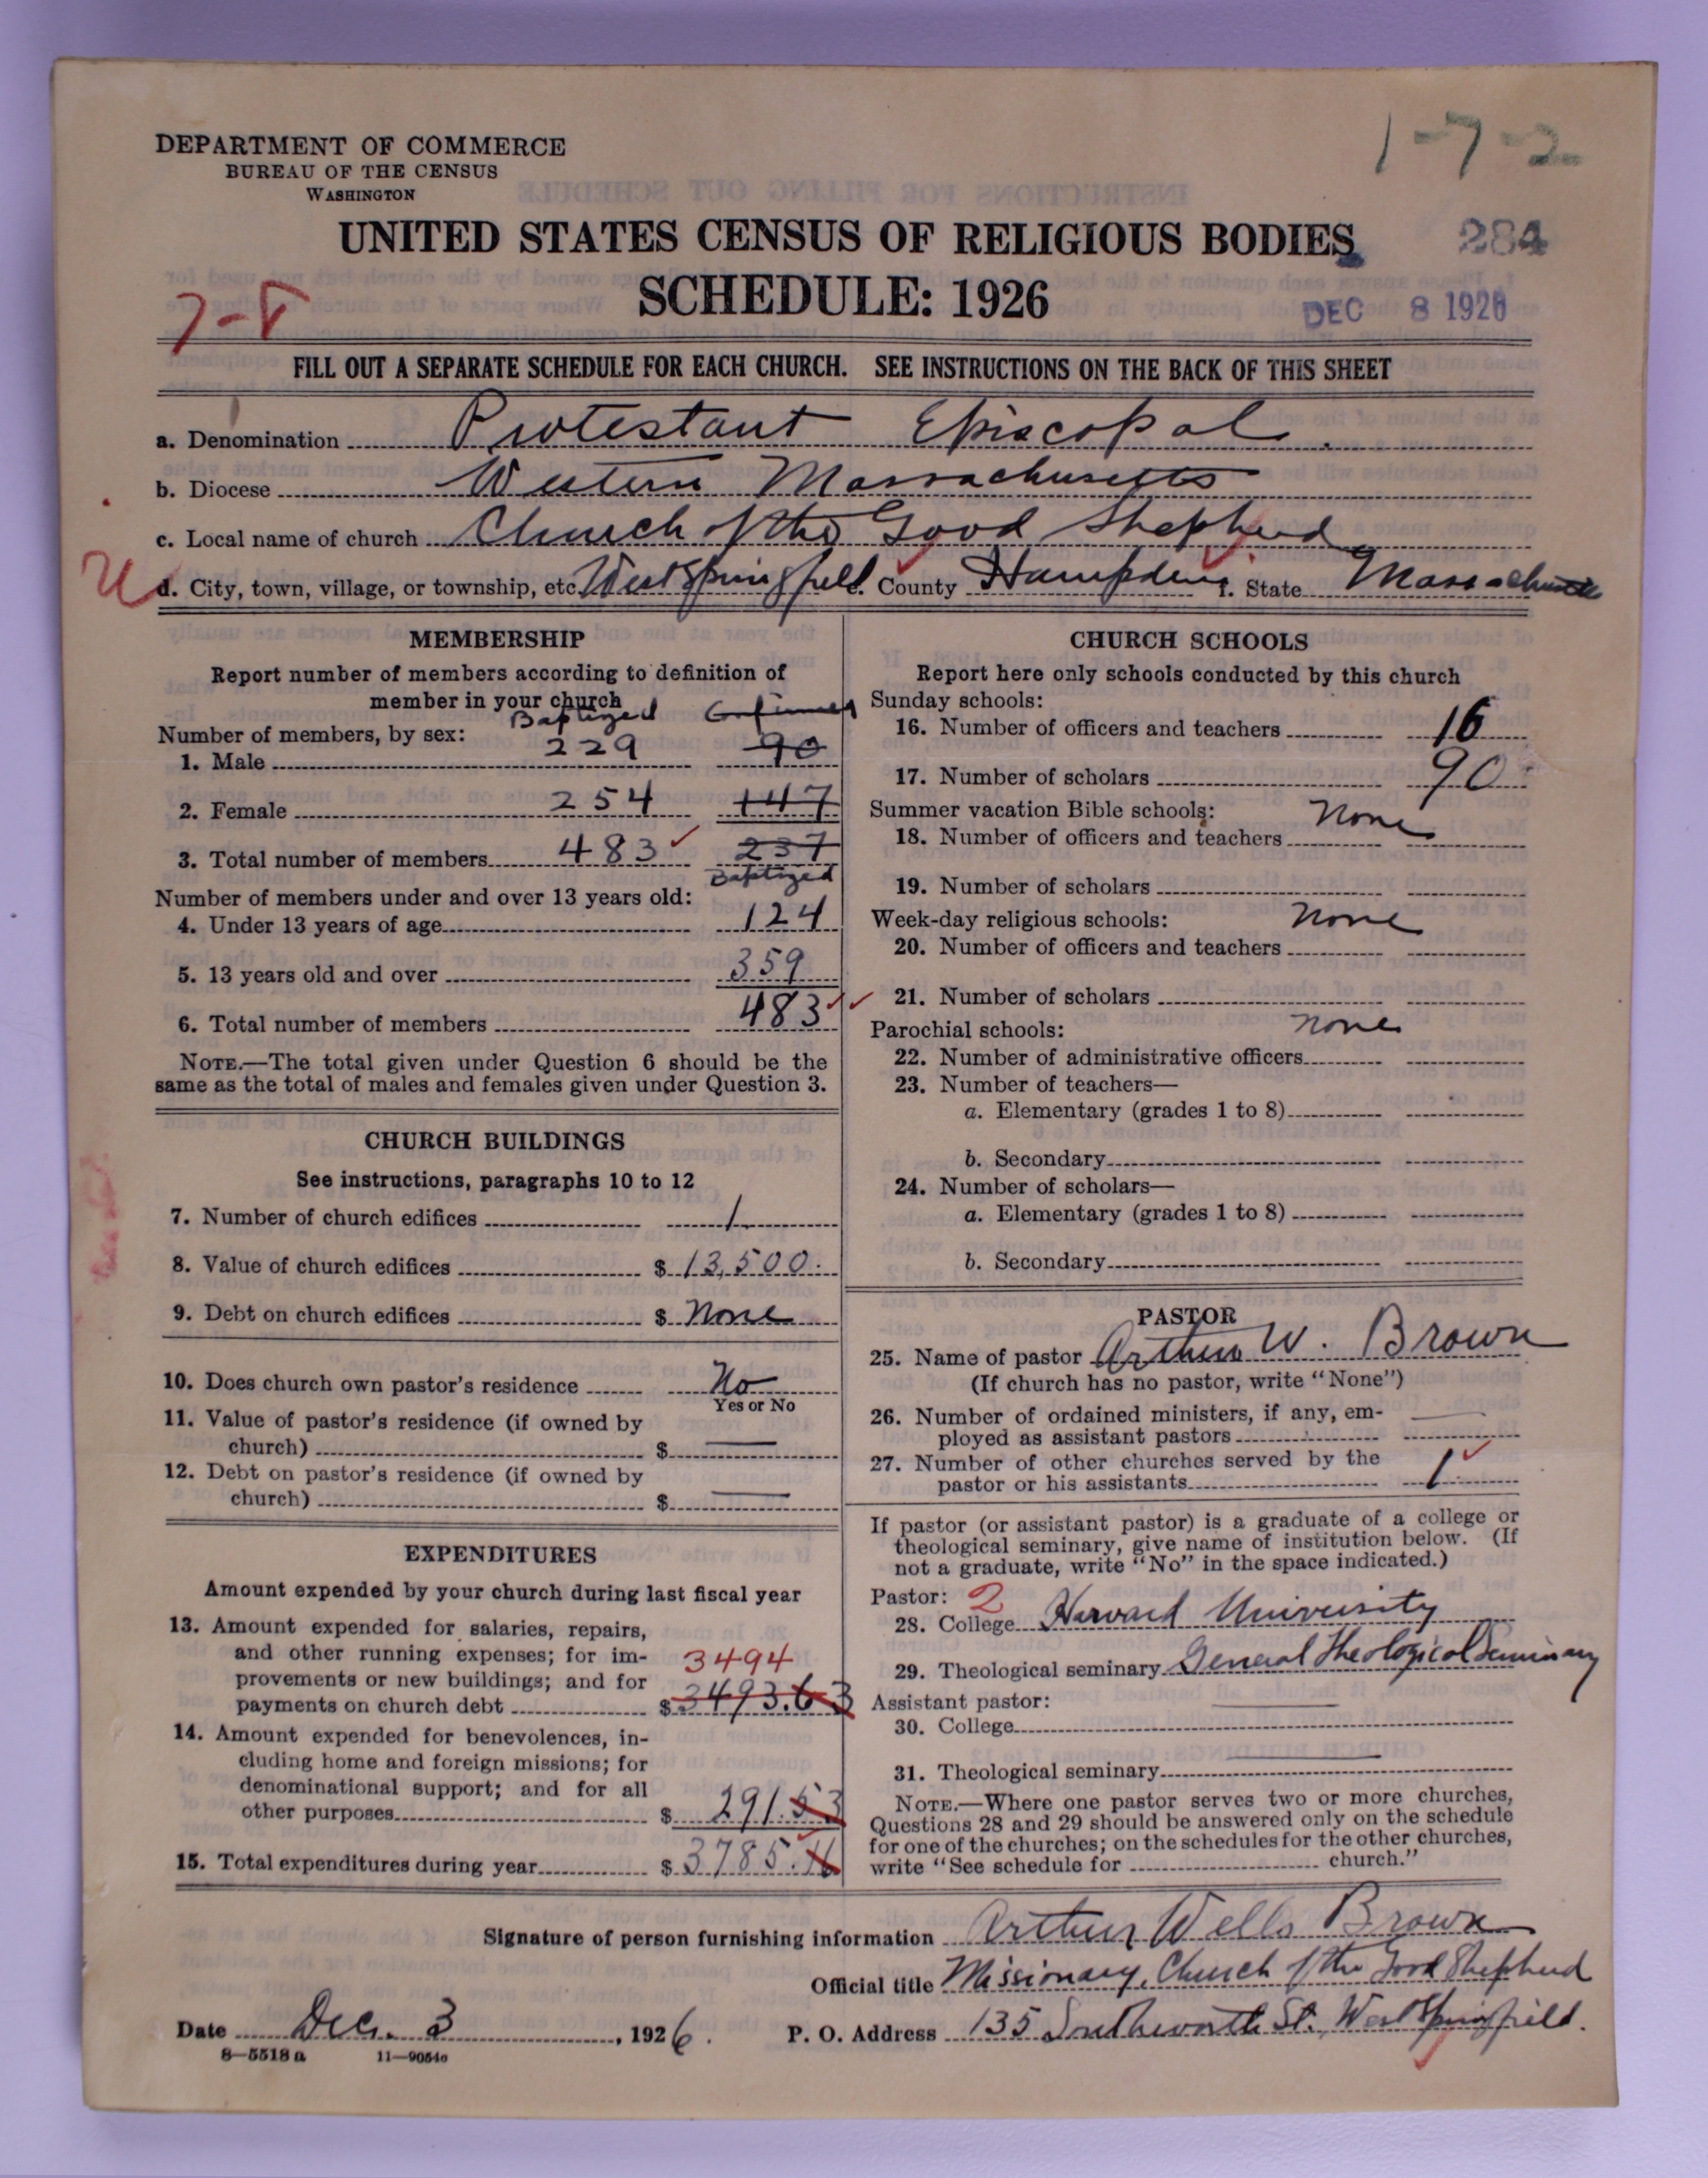 1-7-2
DEPARTMENT OF COMMERCE
BUREAU OF THE CENSUS
WASHINGTON
UNITED STATES CENSUS OF RELIGIOUS BODIES
284
SCHEDULE: 1926
7-8
DEC 8 1926
FILL OUT A SEPARATE SCHEDULE FOR EACH CHURCH. SEE INSTRUCTIONS ON THE BACK OF THIS SHEET
a. Denomination Protestant Episcopal
b. Diocese Western Massachusetts
c. Local name of church Church of the Good Shepherd
U d. City, town, village, or township, etc. West Springfield e. County Hampden f. State Massachusetts
MEMBERSHIP
Report number of members according to definition of
member in your church
Baptized Confirmed
Number of members, by sex:
1. Male 229 90
2. Female 254 147
3. Total number of members 483 237
Baptized
Number of members under and over 13 years old:
4. Under 13 years of age 124
5. 13 years old and over 359
6. Total number of members 483
NOTE.—The total given under Question 6 should be the
same as the total of males and females given under Question 3.
CHURCH BUILDINGS
See instructions, paragraphs 10 to 12
7. Number of church edifices 1
8. Value of church edifices $ 13,500.
9. Debt on church edifices $ None
10. Does church own pastor's residence No
Yes or No
11. Value of pastor's residence (if owned by
church) $ —
12. Debt on pastor's residence (if owned by
church) $ —
EXPENDITURES
Amount expended by your church during last fiscal year
13. Amount expended for salaries, repairs,
and other running expenses; for im-
provements or new buildings; and for
3494
payments on church debt $ 3493.63
14. Amount expended for benevolences, in-
cluding home and foreign missions; for
denominational support; and for all
other purposes $ 291.53
15. Total expenditures during year $ 3785.16
CHURCH SCHOOLS
Report here only schools conducted by this church
Sunday schools:
16. Number of officers and teachers 16
17. Number of scholars 90
Summer vacation Bible schools: None
18. Number of officers and teachers
19. Number of scholars
Week-day religious schools: None
20. Number of officers and teachers
21. Number of scholars
Parochial schools: None
22. Number of administrative officers
23. Number of teachers—
a. Elementary (grades 1 to 8)
b. Secondary
24. Number of scholars—
a. Elementary (grades 1 to 8)
b. Secondary
PASTOR
25. Name of pastor Arthur W. Brown
(If church has no pastor, write "None")
26. Number of ordained ministers, if any, em-
ployed as assistant pastors —
27. Number of other churches served by the
pastor or his assistants 1
If pastor (or assistant pastor) is a graduate of a college or
theological seminary, give name of institution below. (If
not a graduate, write "No" in the space indicated.)
Pastor: 2
28. College Harvard University
29. Theological seminary General Theological Seminary
Assistant pastor:
30. College —
31. Theological seminary —
NOTE.—Where one pastor serves two or more churches,
Questions 28 and 29 should be answered only on the schedule
for one of the churches; on the schedules for the other churches,
write "See schedule for church."
Signature of person furnishing information Arthur Wells Brown
Official title Missionary, Church of the Good Shepherd
Date Dec. 3, 1926. P. O. Address 135 Southworth St., West Springfield.
8—5518 a 11—9054c